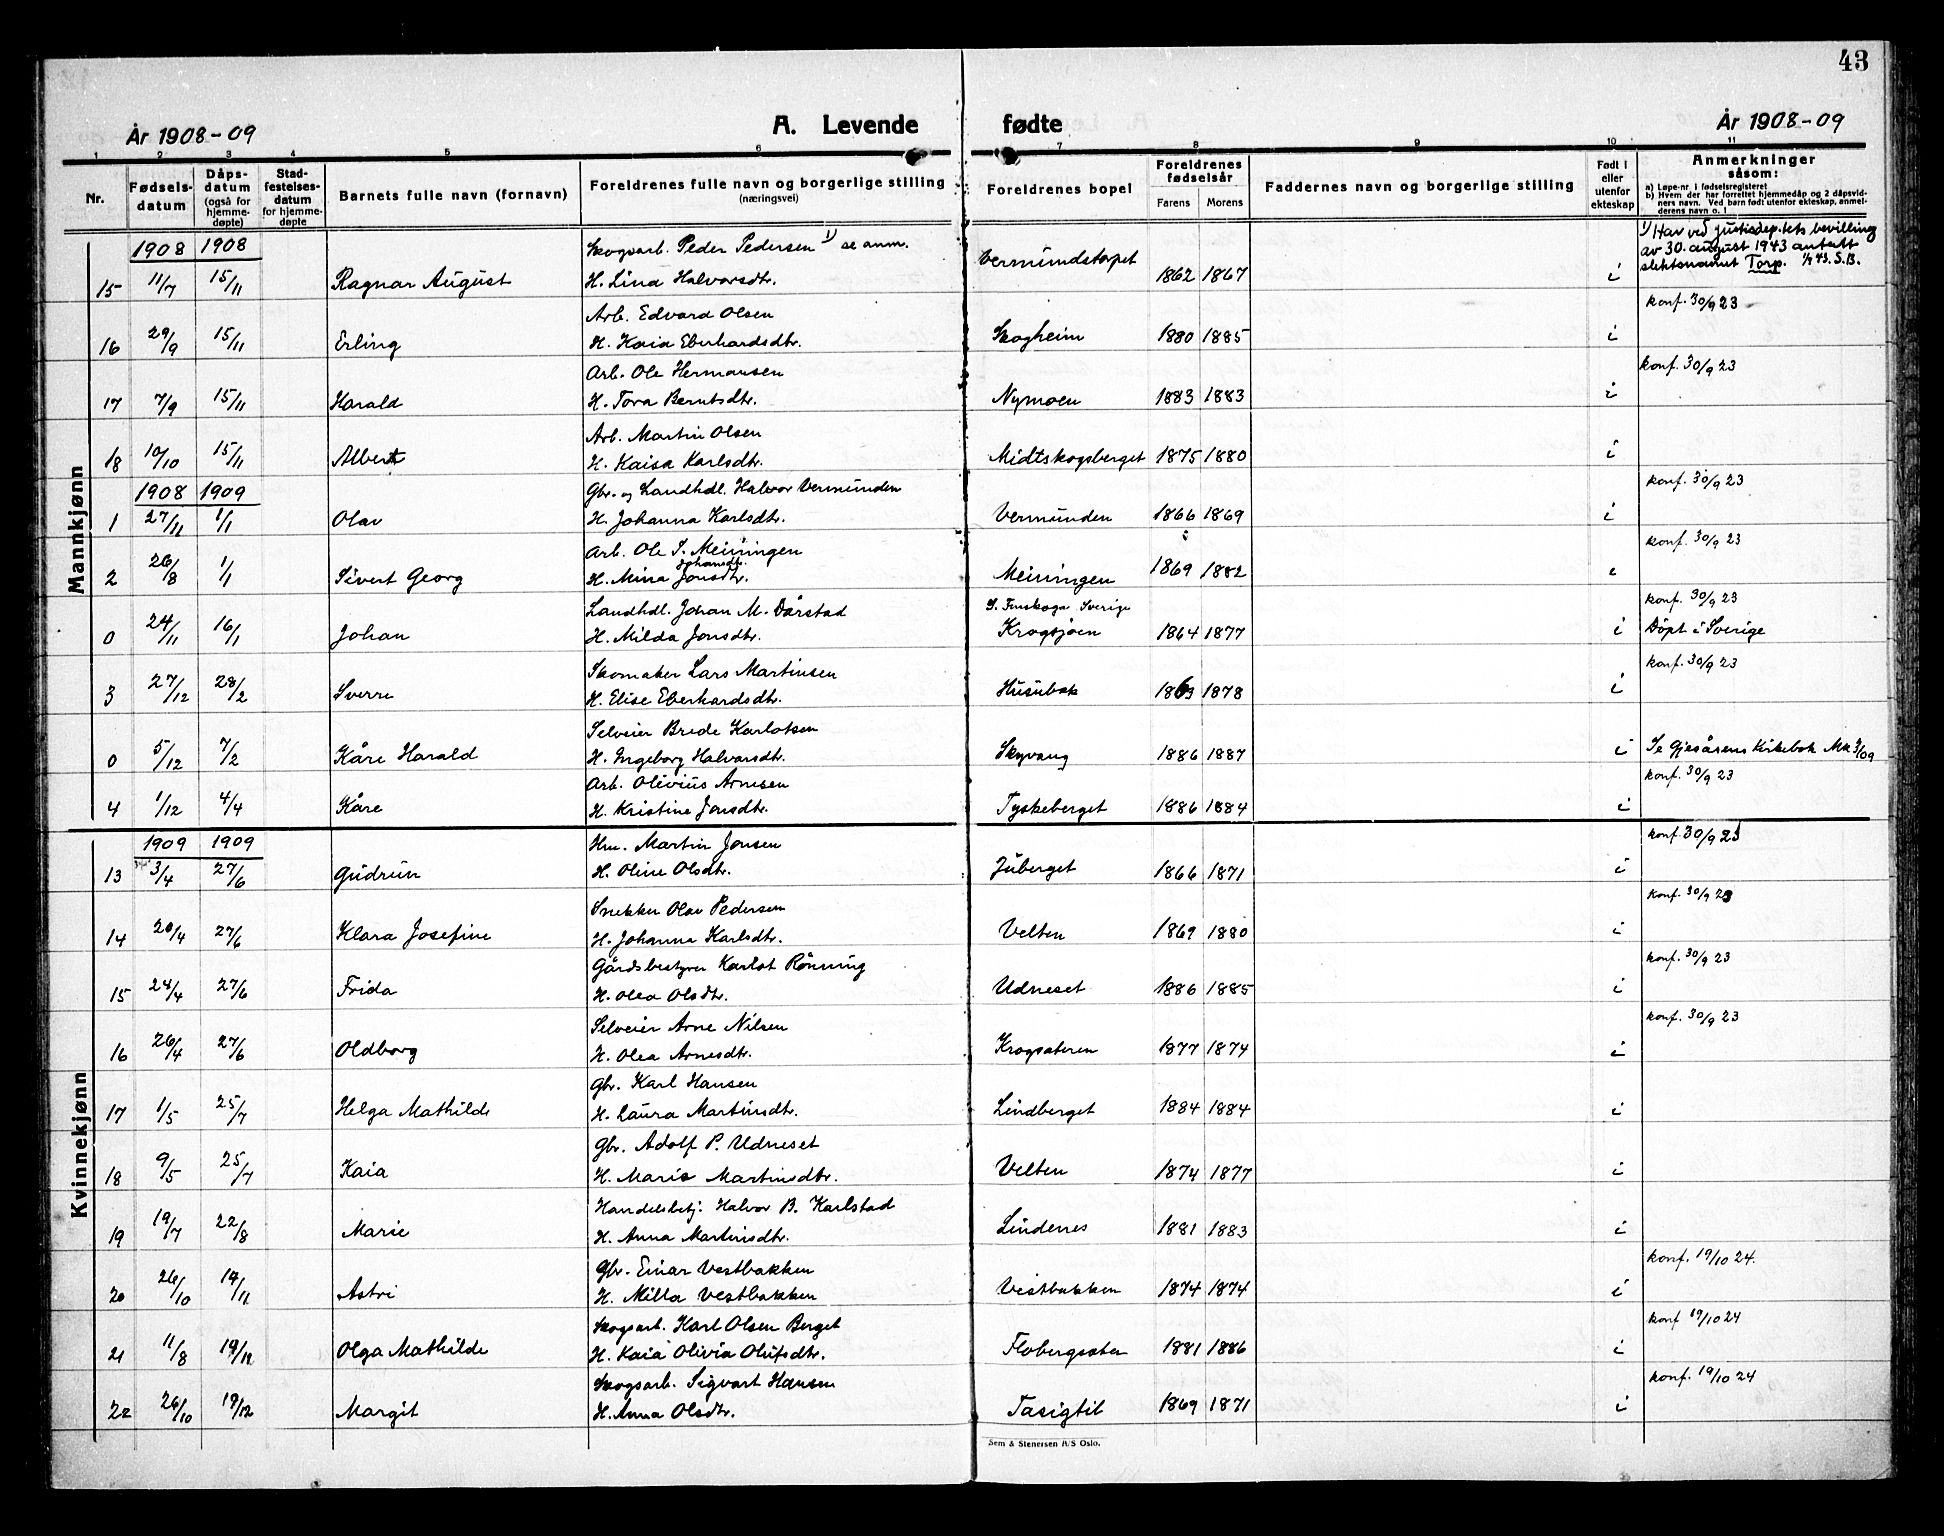 43
År 1908-09 A. Levende fødte År 1908-09
1 2 3 4 5 6 7 8 9 10 11
Nr. Fødsels-datum Dåps-datum (også for hjemme-døpte) Stad-festelses-datum for hjemme-døpte Barnets fulle navn (fornavn) Foreldrenes fulle navn og borgerlige stilling (næringsvei) Foreldrenes bopel Foreldrenes fødselsår Farens Morens Faddernes navn og borgerlige stilling Født i eller utenfor ekteskap Anmerkninger såsom:
a) Løpe-nr. i fødselsregisteret
b) Hvem der har forrettet hjemmedåp og 2 dåpsvidners navn. Ved barn født utenfor ekteskap, anmelderens navn o. l
Mannkjønn
1908 1908 Skogsarb. Peder Pedersen 1) se anm. 1) Har ved justisdep.tets bevilling
av 30. august 1943 antatt
15 11/7 15/11 Ragnar August H. Lina Halvorsdtr. Vermundstorpet 1862 1867 i slektsnavnet Torp. 1/9 43. S.B.
Arb. Edvard Olsen konf. 30/9 23
16 29/9 15/11 Erling H. Kaia Eberhardsdtr. Skogheim 1880 1885 i
Arb. Ole Hermansen konf. 30/9 23
17 7/9 15/11 Harald H. Tora Berntsdtr. Nymoen 1883 1883 i
Arb. Martin Olsen
18 10/10 15/11 Albert H. Kaisa Karlsdtr. Midtskogsberget 1875 1880 i
1908 1909 Gbr. og Landhdl. Halvor Vermunden konf. 30/9 23
1 27/11 1/1 Olav H. Johanna Karlsdtr. Vermunden 1866 1869 i
Arb. Ole S. Meiningen konf. 30/9 23
Johansdtr.
2 26/8 1/1 Sivert Georg H. Mina Jonsdtr. Meiningen 1869 1882 i
Landhdl. Johan M. Dårstad S. Finskoga Sverige konf. 30/9 23
0 24/11 16/1 Johan H. Milda Jonsdtr. Krogsjøen 1864 1877 i Døpt i Sverige
Skomaker Lars Martinsen konf. 30/9 23
3 27/12 28/2 Sverre H. Elise Eberhardsdtr. Husubak 1863 1878 i
Selveier Brede Karlotsen
0 5/12 7/2 Kåre Harald H. Ingeborg Halvorsdtr. Skyvang 1886 1887 i Se Gjesåsens Kirkebok Mk 3/09
Arb. Olivius Arnesen konf. 30/9 23
4 1/12 4/4 Kåre H. Kristine Jonsdtr. Tyskeberget 1886 1884 i
Kvinnekjønn
1909 1909 Hm. Martin Jonsen konf. 30/9 23
13 3/4 27/6 Gudrun H. Oline Olsdtr. Juberget 1866 1871 i
Snekker Olav Pedersen konf. 30/9 23
14 20/4 27/6 Klara Josefine H. Johanna Karlsdtr. Velten 1869 1880 i
Gårdsbestyrer Karlot Rønning konf. 30/9 23
15 24/4 27/6 Frida H. Olea Olsdtr. Udneset 1886 1885 i
Selveier Arne Nilsen konf. 30/9 23
16 26/4 27/6 Oldborg H. Olea Arnesdtr. Krogsæteren 1877 1874 i
Gbr. Karl Hansen
17 1/5 25/7 Helga Mathilde H. Laura Martinsdtr. Lindberget 1884 1884 i
Gbr. Adolf P. Udneset
18 9/5 25/7 Kaia H. Marie Martinsdtr. Velten 1874 1877 i
Handelsbetj. Halvor B. Karlstad
19 19/7 22/8 Marie H. Anna Martinsdtr. Lindenes 1881 1883 i
Gbr. Einar Vestbakken konf. 19/10 24.
20 26/10 19/11 Astri H. Milla Vestbakken Vestbakken 1874 1874 i
Skogsarb. Karl Olsen Berget konf 19/10 24
21 11/8 19/12 Olga Mathilde H. Kaia Olivia Olufsdtr. Flobergsæter 1881 1886 i
Skogsarb. Sigvart Hansen konf. 19/10 24
22 26/10 19/12 Margit H. Anna Olsdtr. Tasigtil 1869 1871 i
Sem & Stenersen A/S Oslo.